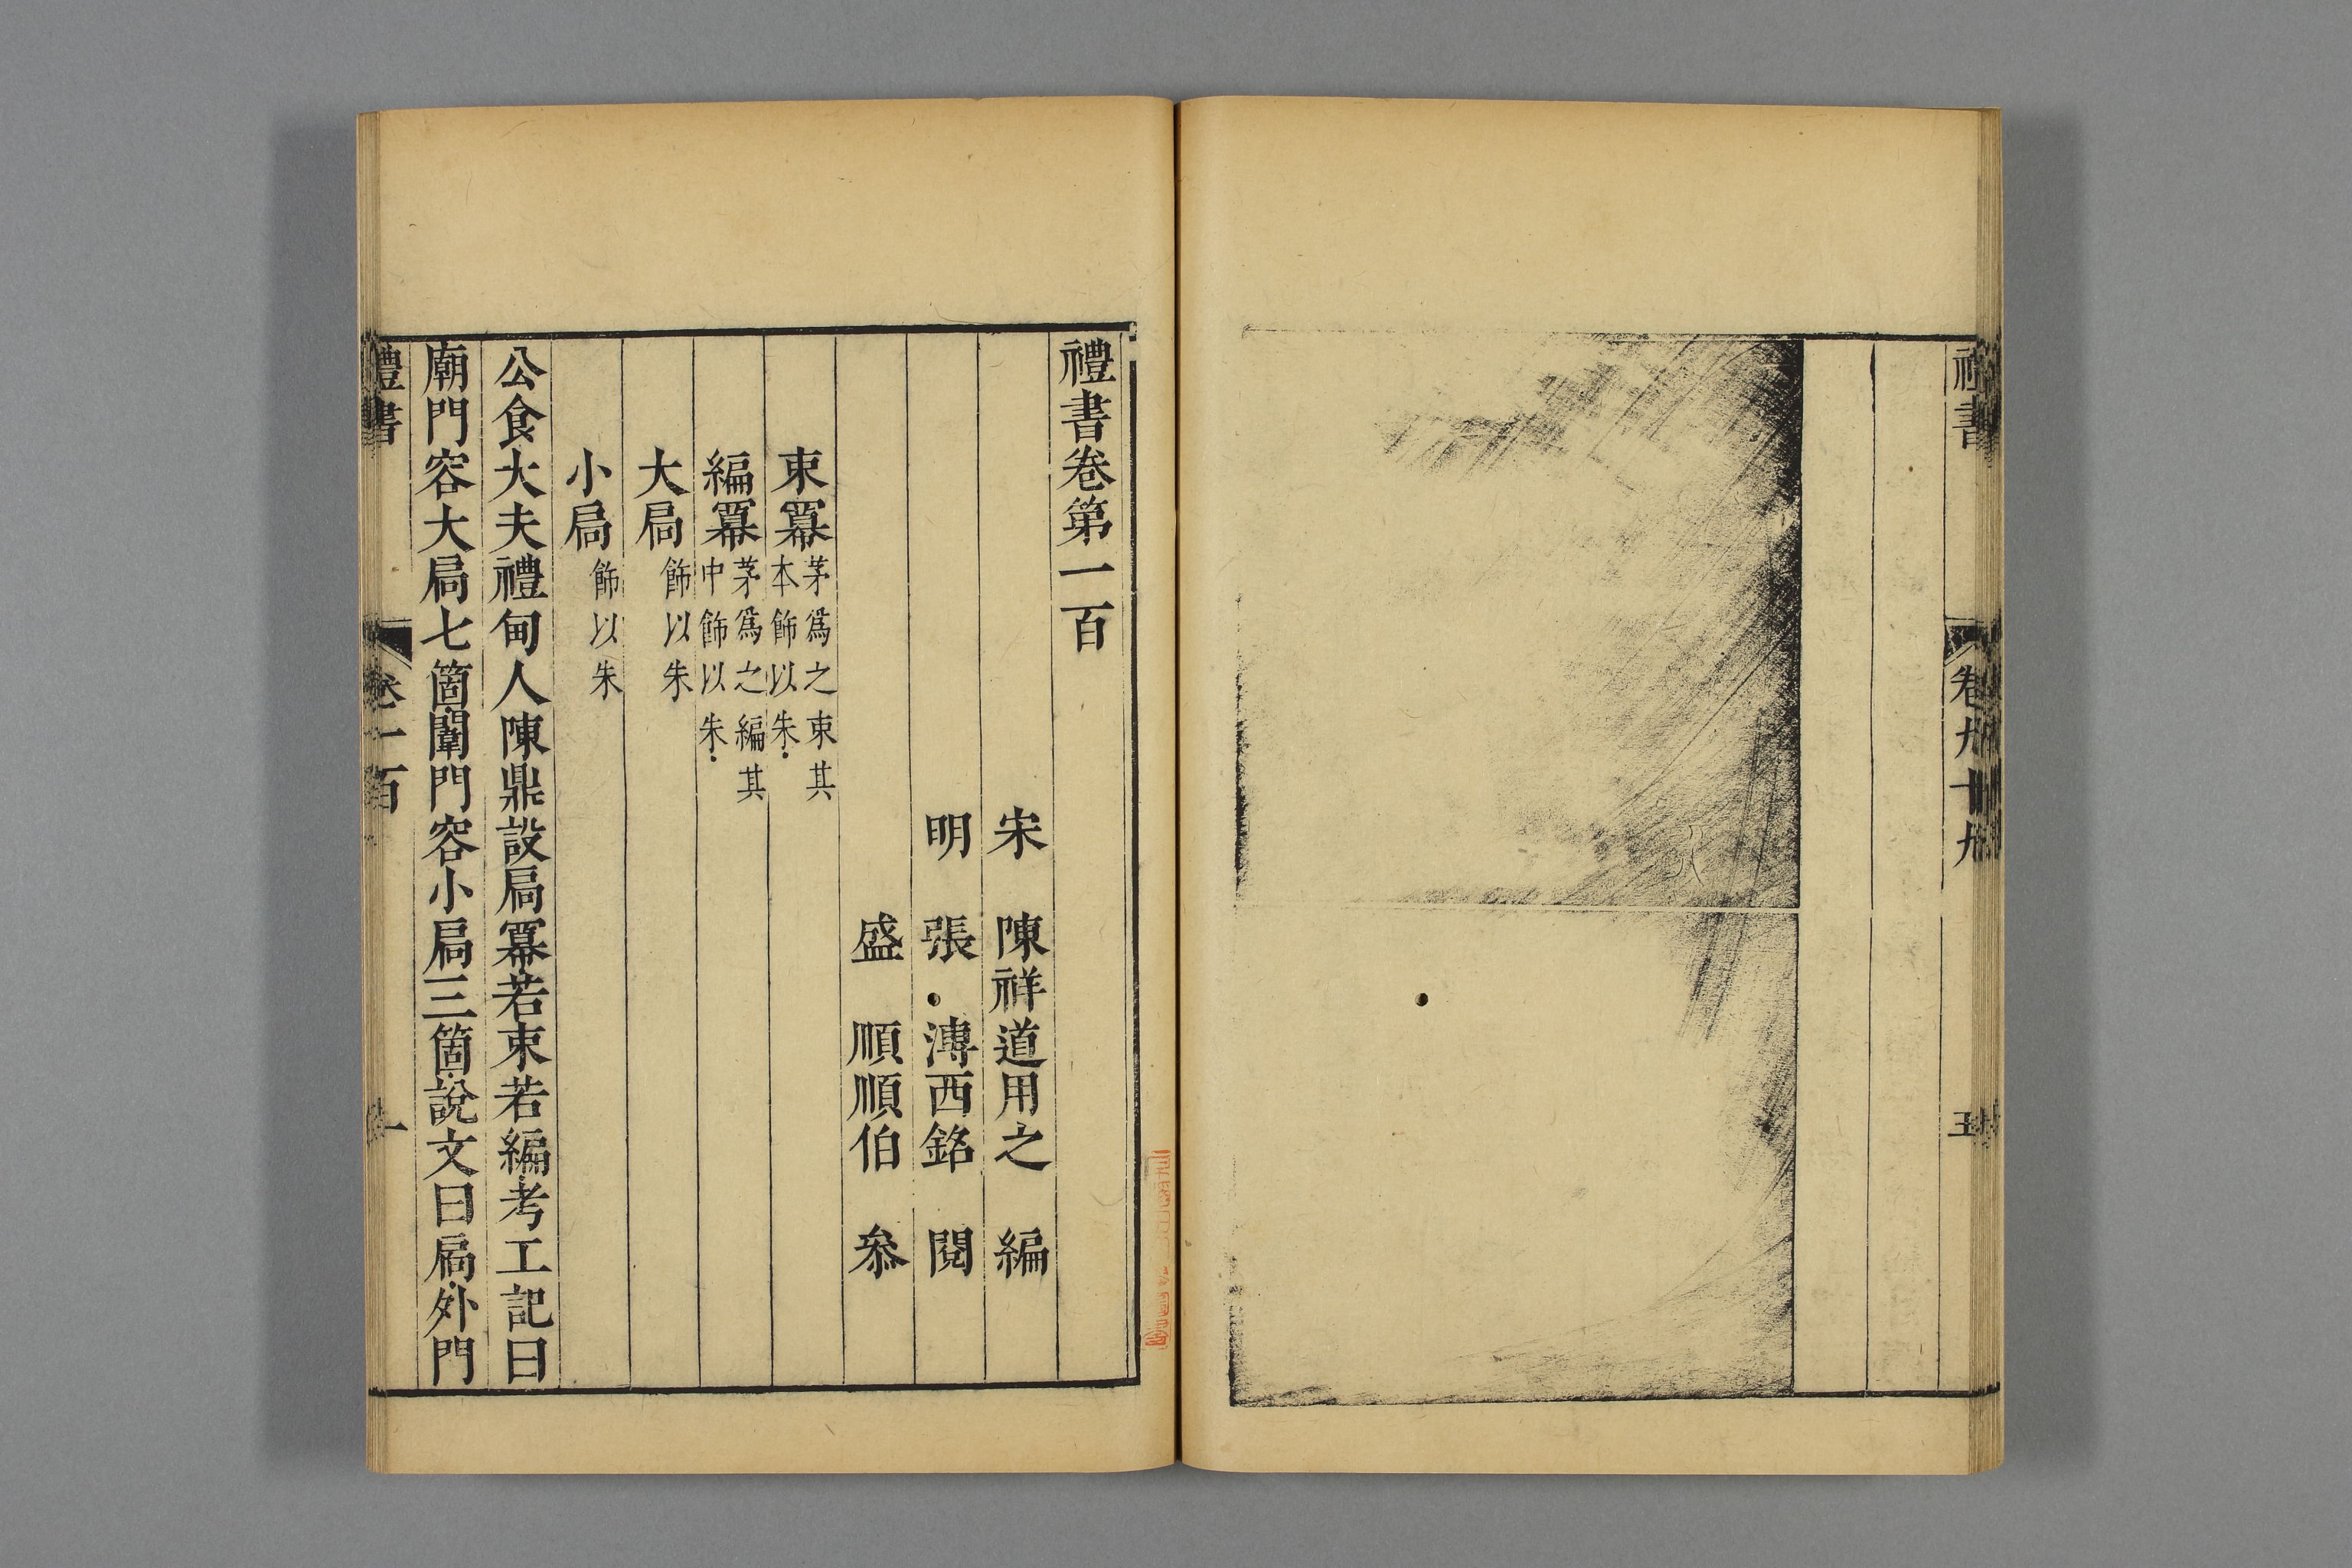 禮書
卷九十九
五
禮書卷第一百
宋 陳祥道用之 編
明 張溥西銘 閱
盛順順伯 叅
束冪茅爲之束其本飾以朱
編冪茅爲之編其中飾以朱
大扃飾以朱
小扃飾以朱
公食大夫禮甸人陳鼎設扃冪若束若編考工記曰
廟門容大扃七箇闈門容小扃三箇說文曰扃外門
禮書
卷一百
一